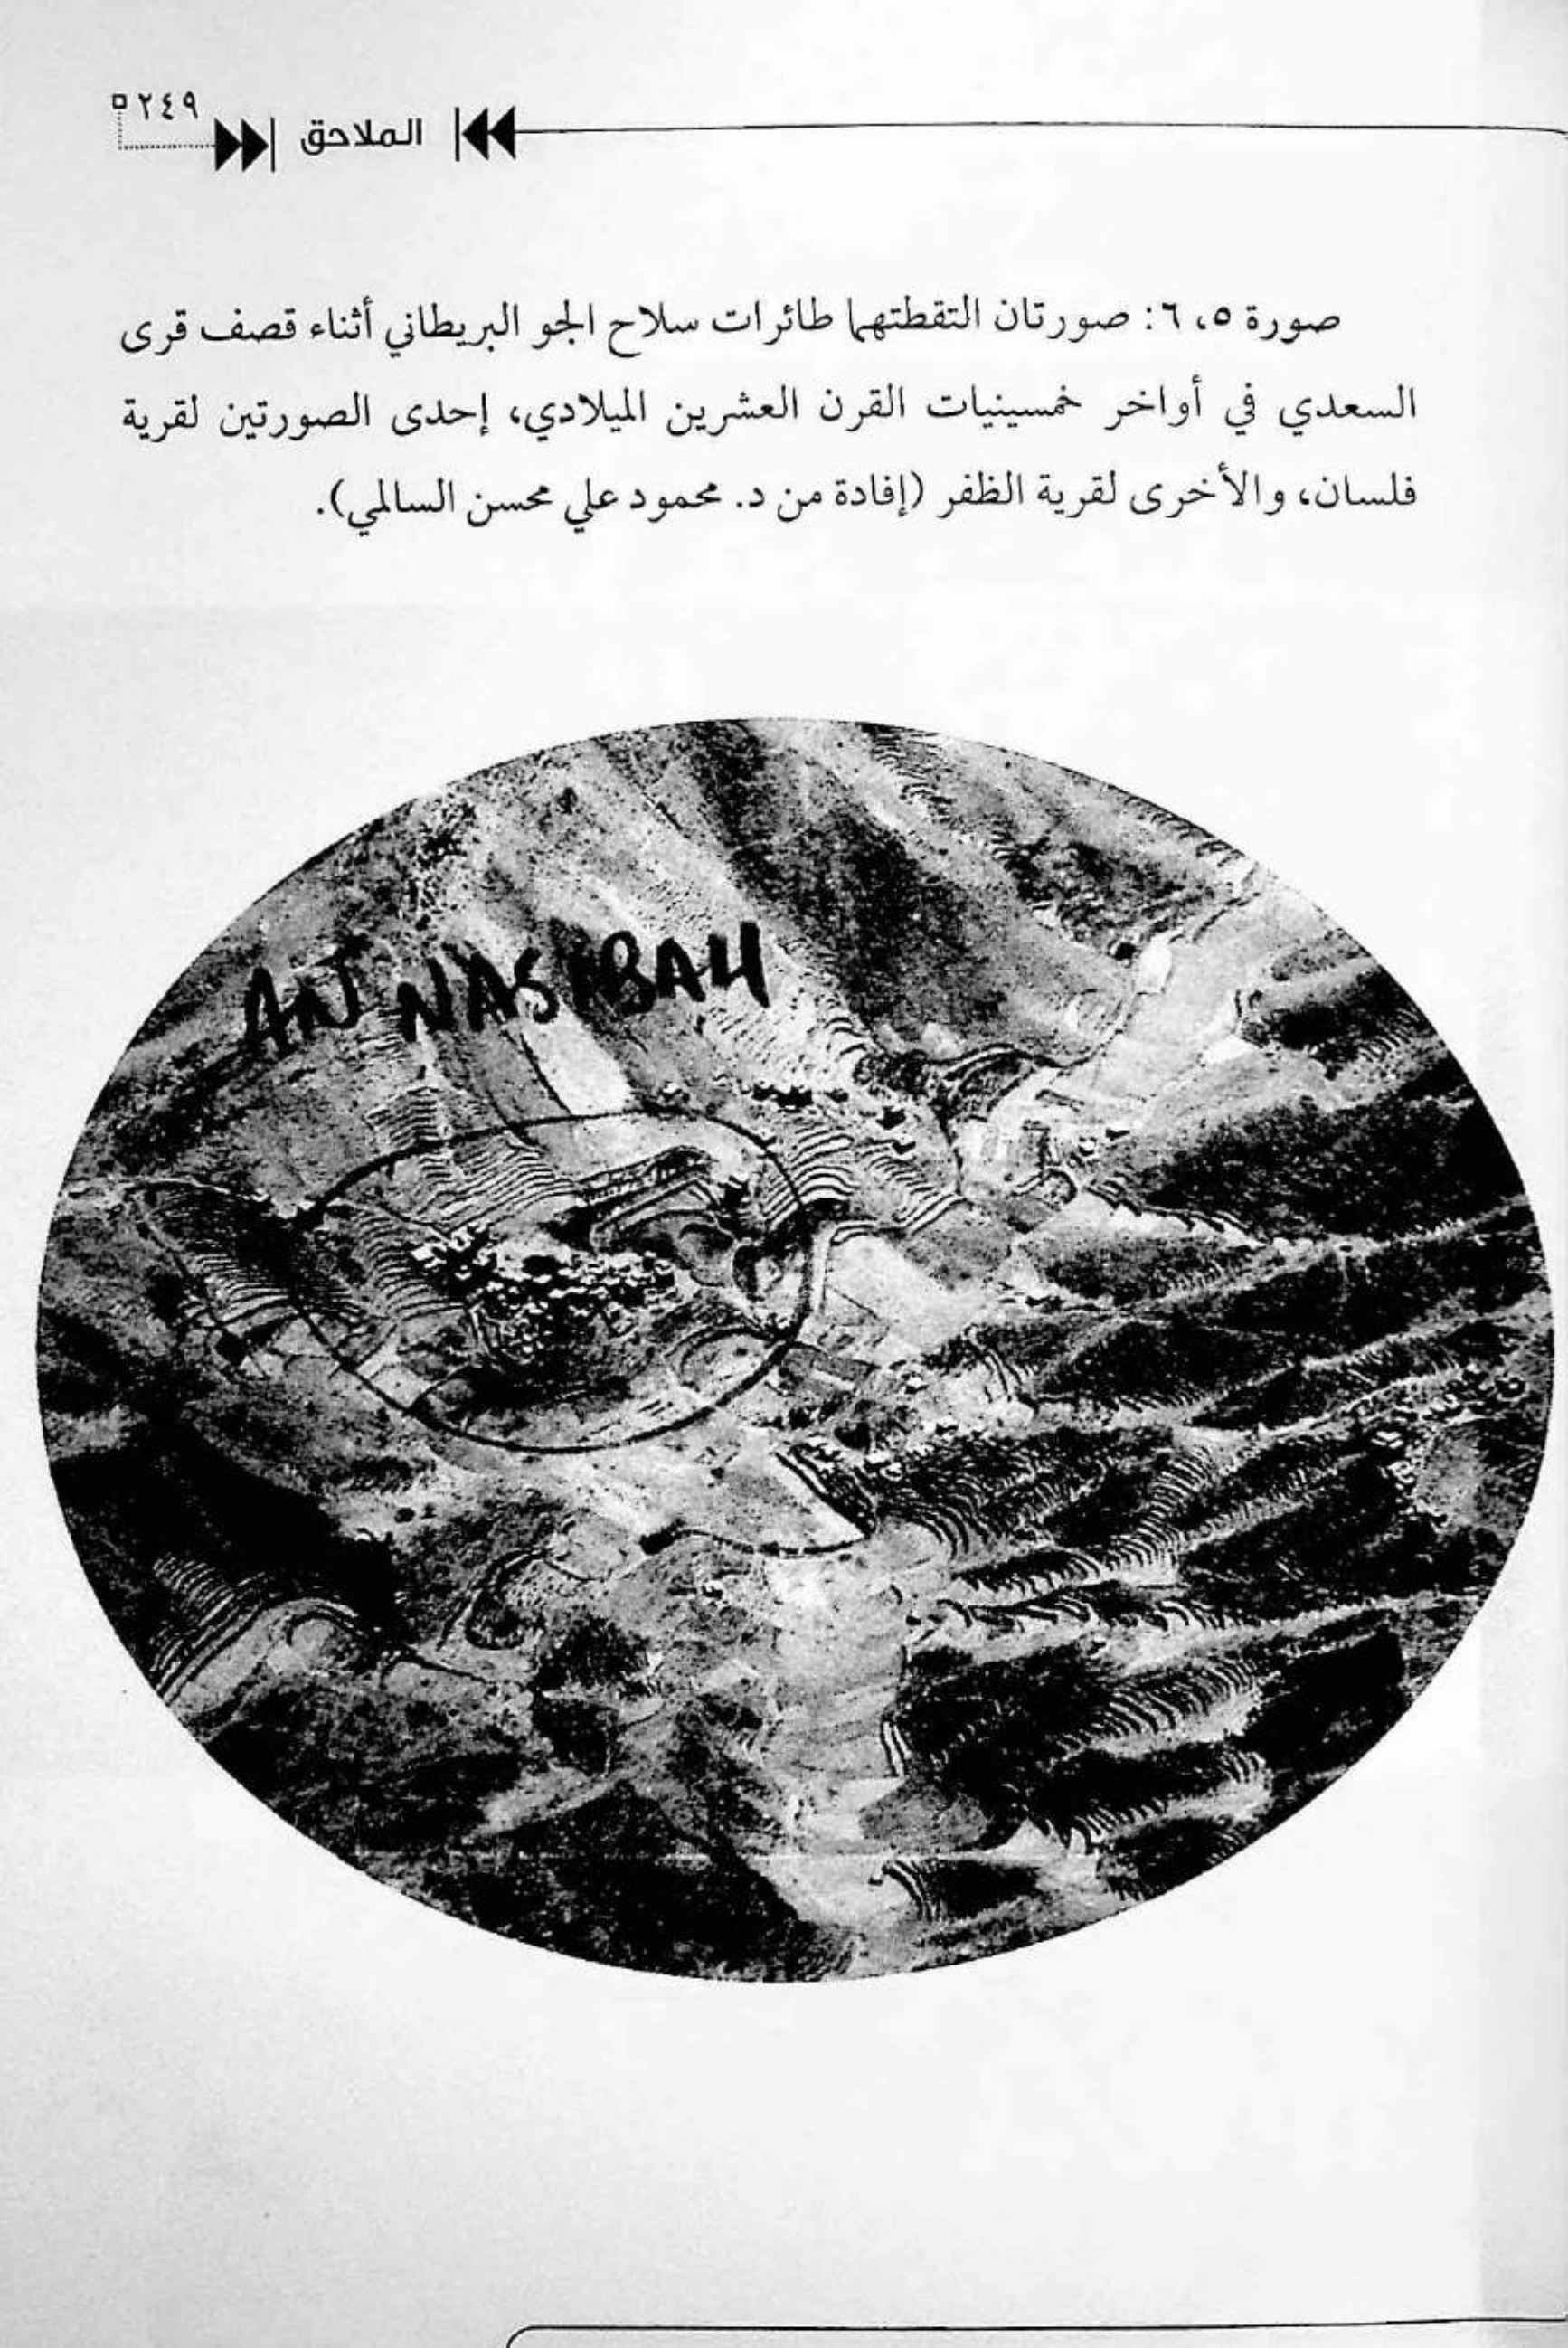 ٢٤٩
الملاحق
صورة ٥، ٦: صورتان التقطتهما طائرات سلاح الجو البريطاني أثناء قصف قرى
السعدي في أواخر خمسينيات القرن العشرين الميلادي، إحدى الصورتين لقرية
فلسان، والأخرى لقرية الظفر (إفادة من د. محمود علي محسن السالمي).
AN NASIBAH